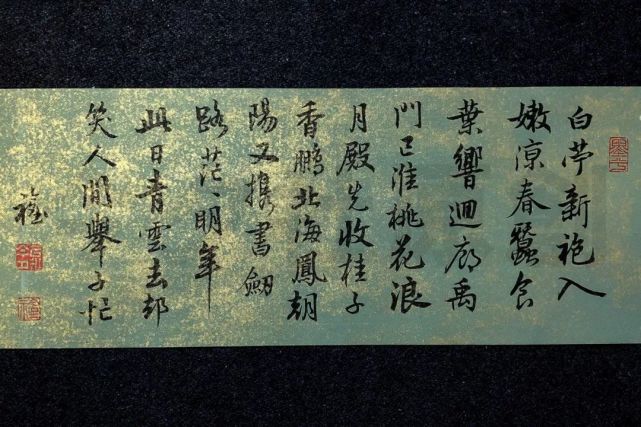 白苧新袍入
嫩涼春蠶食
葉響迴廊禹
門已准桃花浪
月殿先收桂子
香鵬北海鳳朝
陽又携書劒
路茫々明年
此日青雲去却
笑人間舉子忙